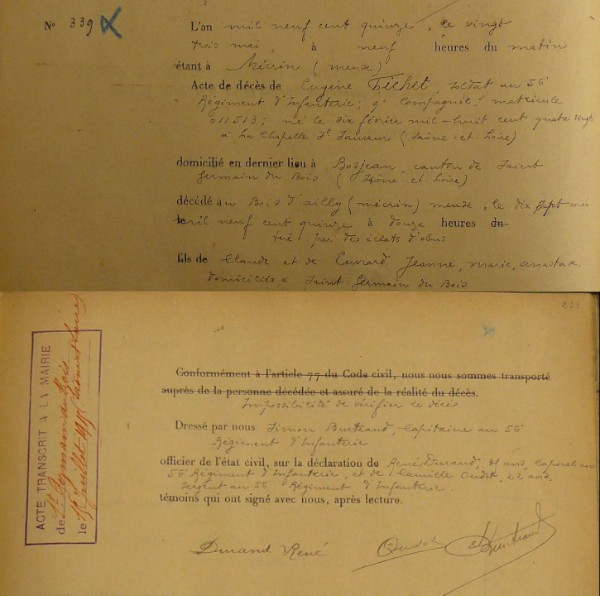 N° 339
L'an mil neuf cent quinze, le vingt
trois mai, à neuf heures du matin
étant à Mécrin (meuse)
Acte de décès de Eugène Tichet, soldat au 56e
Régiment d'Infanterie; 9e Compagnie, matricule
011513; né le dix février mil-huit cent quatre vingt
à La Chapelle St Sauveur (Saône et Loire)
domicilié en dernier lieu à Bosjean, canton de Saint
Germain du Bois (Saône et Loire)
décédé au Bois d'ailly (mécrin) meuse, le dix sept mai
mil neuf cent quinze à douze heures du
tué par des éclats d'obus
fils de Claude et de Cunard Jeanne, marie,
domiciliés à Saint Germain du Bois
221
ACTE TRANSCRIT A LA MAIRIE
de St Germain du Bois
le juillet
Conformément à l'article 77 du Code civil, nous nous sommes transporté
auprès de la personne décédée et assuré de la réalité du décès.
Impossibilité de vérifier le décès
Dressé par nous Simon Burteaud, Capitaine au 56e
Régiment d'Infanterie
officier de l'état civil, sur la déclaration de René Durand, 21 ans, Caporal au
56e Régiment d'Infanterie, et de Camille Oudot, 22 ans,
Sergent au 56e Régiment d'Infanterie.
témoins qui ont signé avec nous, après lecture.
Durand René Oudot SBurteaud